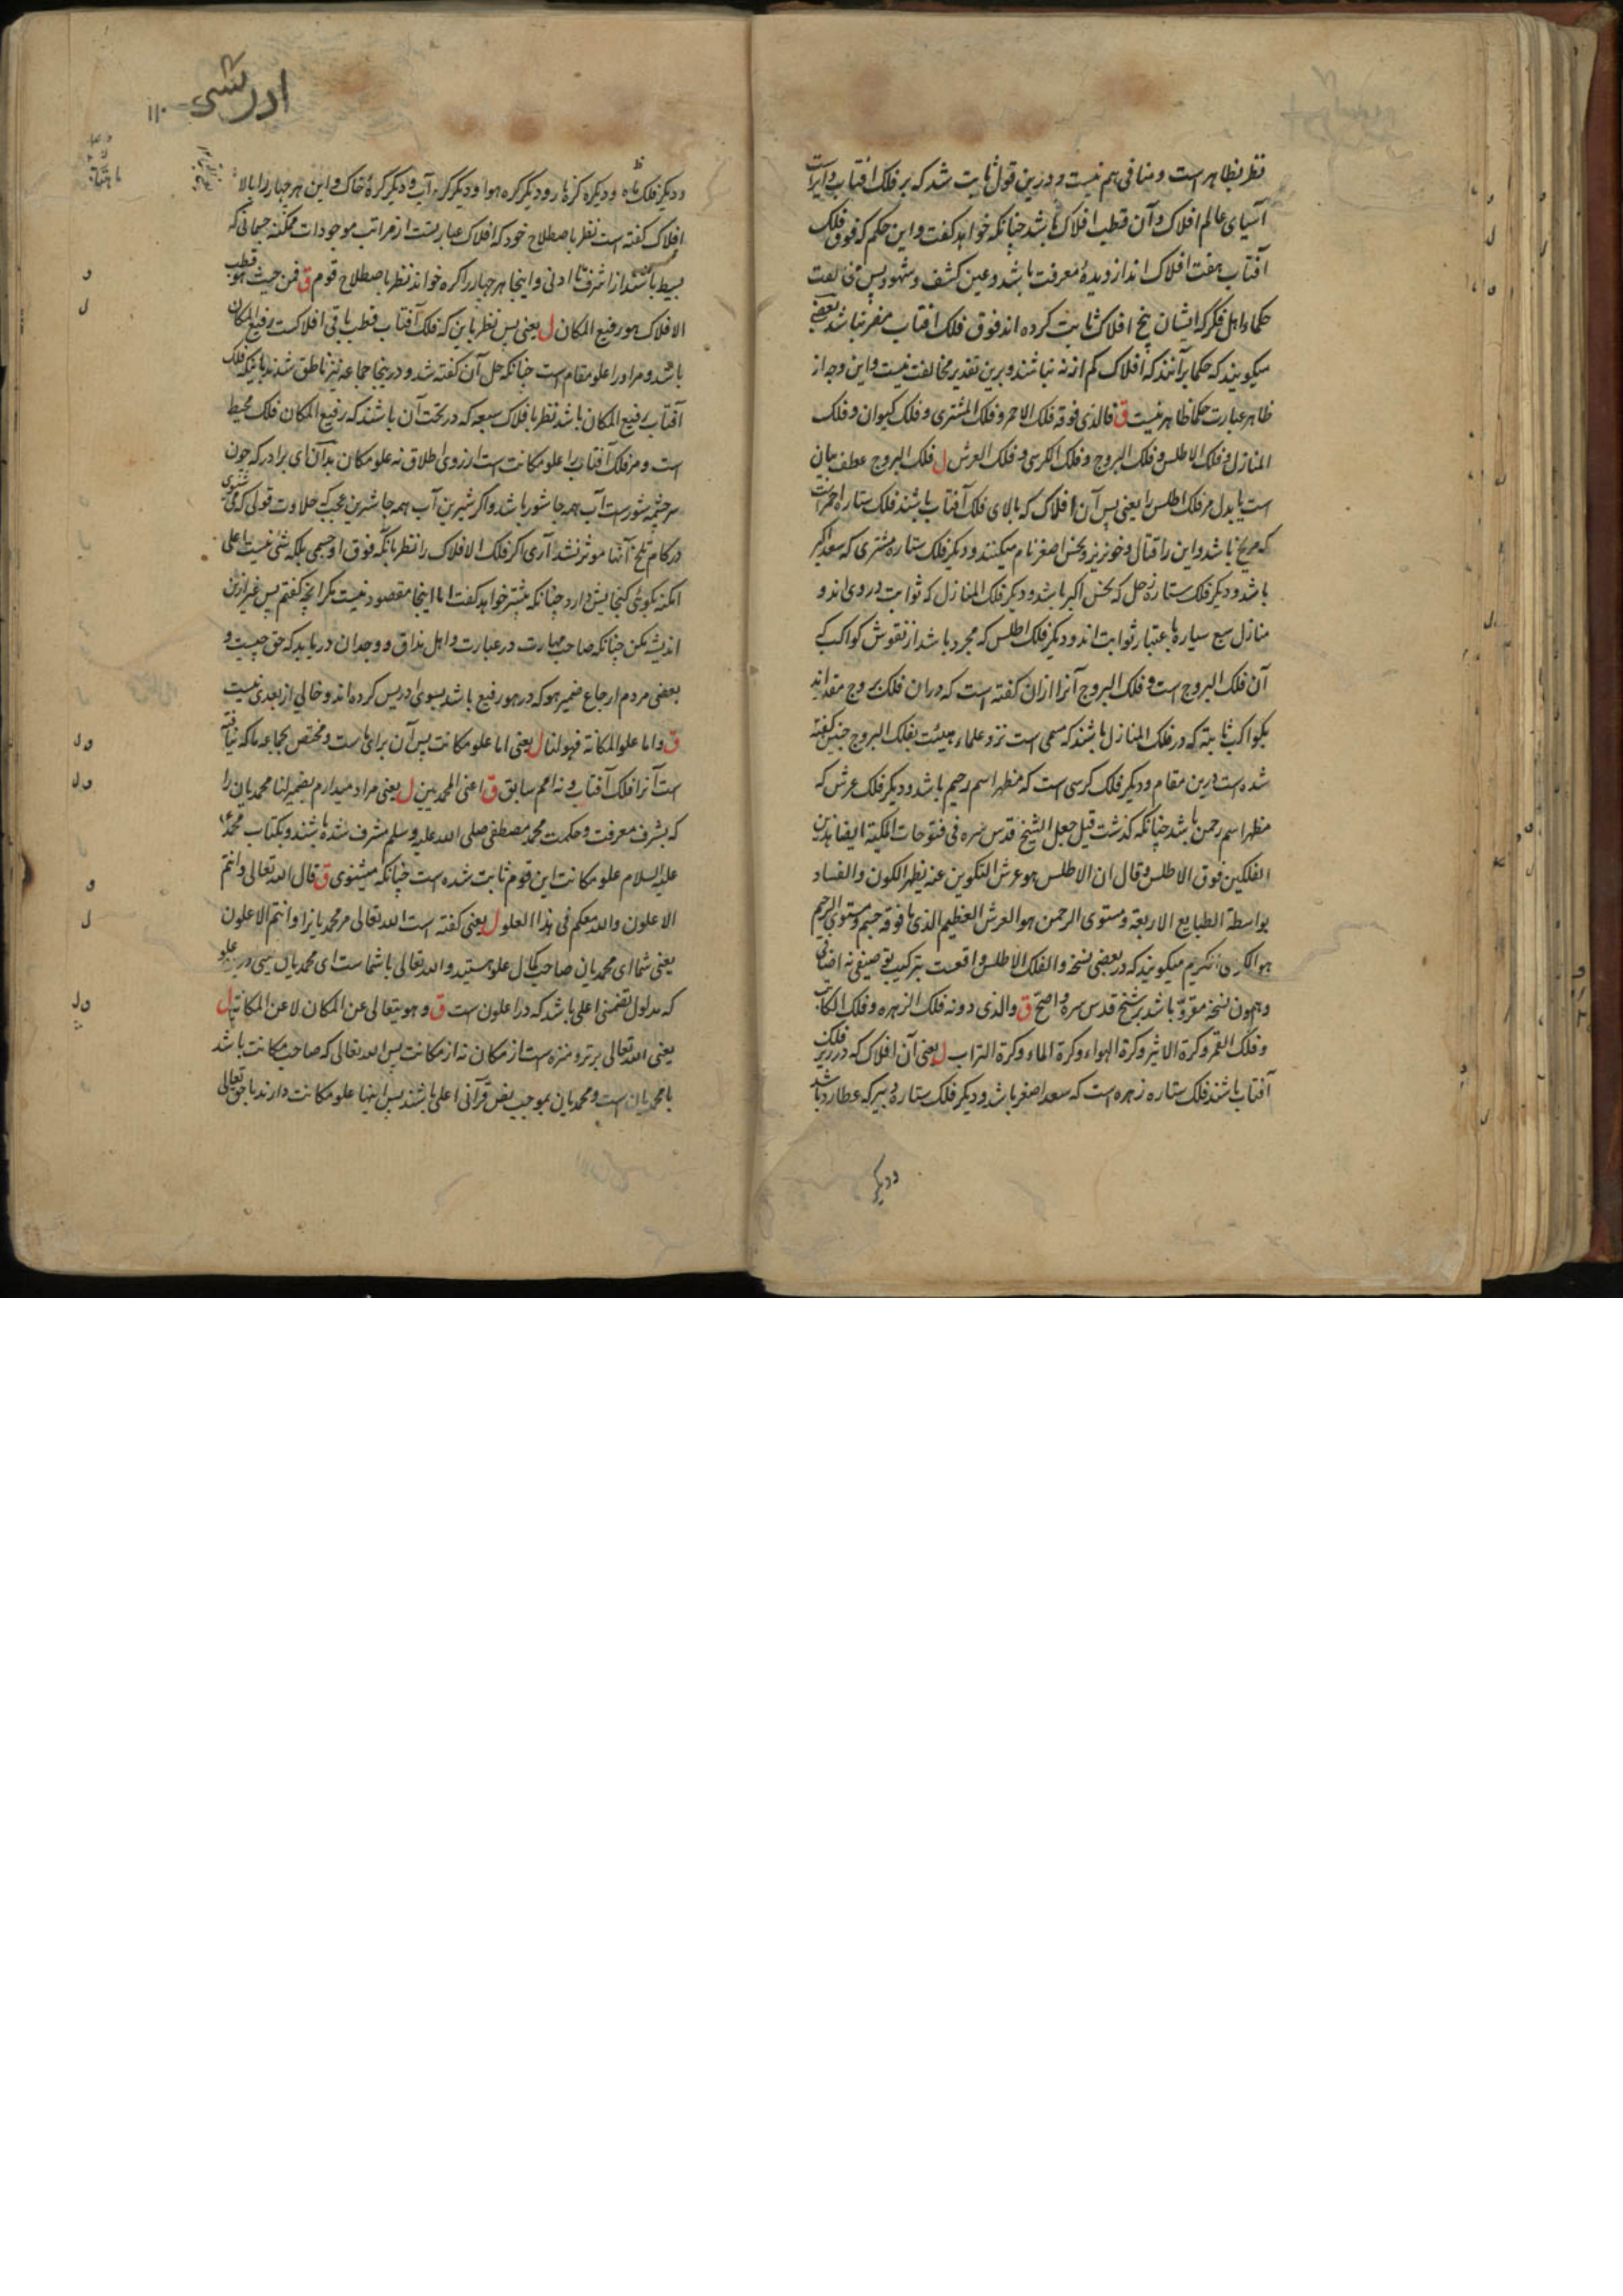 نظر بظاهر است و منافی هم نیست و درین قول ثابت شد که بر فلک افتاب دایراست
آسیای عالم افلاک و آن قطب افلاک باشد چنانکه خواهد گفت و این حکم که فوق فلک
افتاب هفت افلاک اند از دیدهٔ معرفت باشد و عین کشف و شهود پس مخالفت
حکماء اهل فکر که ایشان پنج افلاک ثابت کرده اند فوق فلک افتاب مضر نباشد بعضی
میگویند که حکما برآنند که افلاک کم از نه نباشند و برین تقدیر مخالفت نیست و این وجه از
ظاهر عبارت حکما ظاهر نیست ق فالذی فوقه فلک الاحمر و فلک المشتری و فلک کیوان و فلک
المنازل و فلک الاطلس و فلک البروج و فلک الکرسی و فلک العرش ل فلک البروج عطف بیان
است یا بدل مر فلک اطلس را یعنی پس آن افلاک که بالای فلک آفتاب باشند فلک ستاره احمر است
که مریخ باشد و این را قتال و خونریز و نحس اصغر نام میکنند و دیگر فلک ستاره مشتری که سعد اکبر
باشد و دیگر فلک ستاره زحل که نحس اکبر باشد و دیگر فلک المنازل که ثوابت در وی اند و
منازل سبع سیاره باعتبار ثوابت اند و دیگر فلک اطلس که مجرد باشد از نقوش کواکب که
آن فلک البروج است و فلک البروج آنرا ازان گفته است که دران فلک بروج مقدراند
بکواکب ثابته که در فلک المنازل باشند که مسمی است نزد علماء هیئت بفلک البروج چنین گفته
شده است درین مقام و دیگر فلک کرسی است که مظهر اسم رحیم باشد و دیگر فلک عرش که
مظهر اسم رحمن باشد چنانکه گذشت قبل جعل الشیخ قدس سره فی فتوحات المکیة ایضا هذین
الفلکین فوق الاطلس و قال ان الاطلس هو عرش التکوین عنه یظهر الکون و الفساد
بواسطة الطبایع الاربعة و مستوی الرحمن هو العرش العظیم الذی ما فوقه جسم و مستوی الرحیم
هو الکرسی الکریم میگویند که در بعضی نسخه و الفلک الاطلس واقعست بترکیب توصیفی نه اضافی
و همون نسخه مقروّ باشد بر شیخ قدس سره و اصح ق والذی دونه فلک الزهره و فلک الکاتب
و فلک القمر و کرة الاثیر و کرة الهواء و کرة الماء و کرة التراب ل یعنی آن افلاک که در زیر فلک
آفتاب باشند فلک ستاره زهره است که سعد اصغر باشد و دیگر فلک ستاره دبیر که عطارد باشد
و دیگر
ادریسی
۱۱۰
و دیگر فلک ماه و دیگر کره نار و دیگر کره هوا و دیگر کره آب و دیگر کرهٔ خاک و این هر چهار را بالا
افلاک گفته است نظر باصطلاح خود که افلاک عبارتست از مراتب موجودات ممکنه جسمانی که
بسیط باشند از اشرف تا ادنی و اینجا هر چهار را کره خواند نظر باصطلاح قوم ق فمن حیث هو قطب
الافلاک هو رفیع المکان ل یعنی پس نظر باین که فلک آفتاب قطب باقی افلاکست رفیع المکان
باشد و مر او را علو مقام است چنانکه حل آن گفته شد و درینجا جماعه نیز ناطق شدند باینکه فلک
آفتاب رفیع المکان باشد نظر با فلاک سبعه که در تحت آن باشند که رفیع المکان فلک محیط
است و مر فلک آفتاب را علو مکانت است ازروی اطلاق نه علو مکان بدان ای برادر که چون
سرچشمه شورست آب همه جا شور باشد و اگر شیرین آب همه جا شیرین عجب که حلاوت قولی که می شنوی
در کام تلخ آنها موثر نشد آری اگر فلک الافلاک را نظر بآنکه فوق او جسمی بلکه شئ نیست باعلی
امکنه بگوئی گنجایش دارد چنانکه پیشتر خواهد گفت اما اینجا مقصود نیست مگر آنچه گفتم پس غیر ازین
اندیشه مکن چنانکه صاحب مهارت در عبارت و اهل مذاق و وجدان دریابد که حق چیست و
بعضی مردم ارجاع ضمیر هو که در هو رفیع باشد بسوی ادریس کرده اند و خالی از بعدی نیست
ق و اما علو المکانة فهو لنا ل یعنی اما علو مکانت پس آن برای ماست و مختص بجماعه ما که نیافته
است آنرا فلک آفتاب و نه امم سابق ق اعنی المحمدیین ل یعنی مراد میدارم بضمیر لنا محمدیان را
که بشرف معرفت و حکمت محمد مصطفی صلی الله علیه وسلم مشرف شده باشند و بکتاب محمد
علیه السلام علو مکانت این قوم ثابت شده است چنانکه میشنوی ق قال الله تعالی و انتم
الاعلون والله معکم فی هذا العلو ل یعنی گفته است الله تعالی مر محمدیانرا و انتم الاعلون
یعنی شما ای محمدیان صاحب کمال علو هستید و الله تعالی با شماست ای محمدیان یعنی درین علو
که مدلول تضمنی اعلی باشد که در اعلون است ق و هو یتعالی عن المکان لا عن المکانة ل
یعنی الله تعالی برتر و منزه است از مکان نه از مکانت پس الله تعالی که صاحب مکانت باشد
با محمدیان است و محمدیان بموجب نص قرآنی اعلی باشند پس اینها علو مکانت دارند با حق تعالی